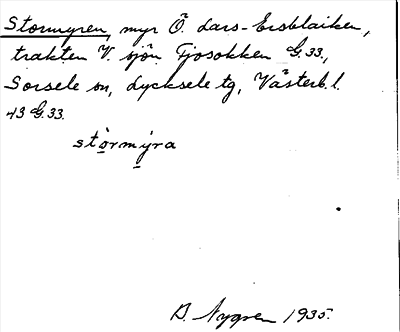 Stormyren, myr Ö. Lars-Ersblaiken,
trakten V. sjön Tjosokken G.33.,
Sorsele sn, Lycksele tg, Västerb.l.
43 G.33.
stòrmýra
B. Nygren 1935.